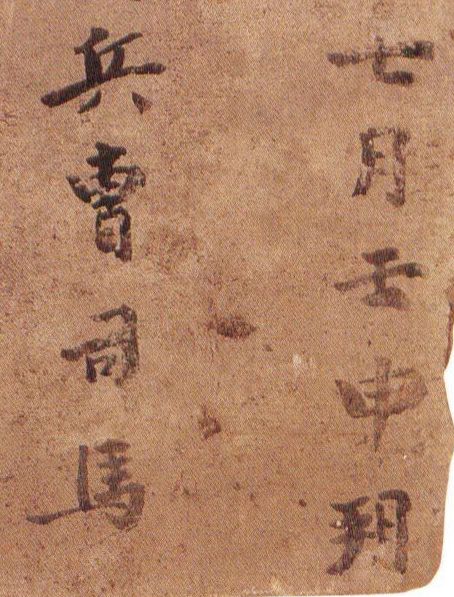 七月壬申朔
兵曹司馬